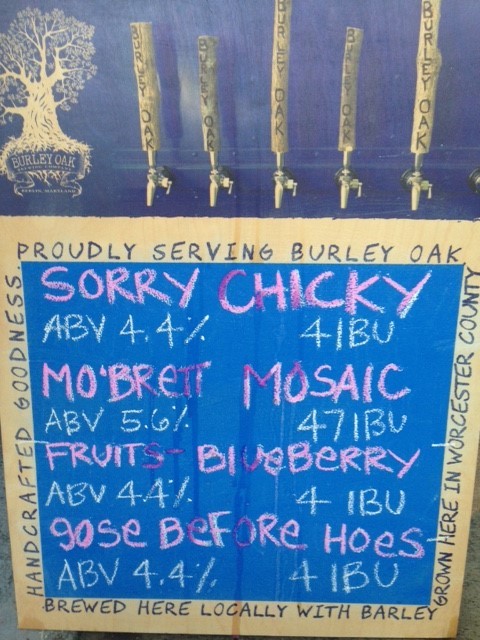 BURLEY OAK
BURLEY OAK
BURLEY OAK
BURLEY OAK
BURLEY OAK
BURLEY OAK
BREWING COMPANY
BERLIN, MARYLAND
PROUDLY SERVING BURLEY OAK
HANDCRAFTED GOODNESS
GROWN HERE IN WORCESTER COUNTY
SORRY CHICKY
ABV 4.4% 4 IBU
MO'BRETT MOSAIC
ABV 5.6% 47 IBU
FRUITS- BlueBeRRY
ABV 4.4% 4 IBU
gose BeFoRe Hoes
ABV 4.4% 4 IBU
BREWED HERE LOCALLY WITH BARLEY